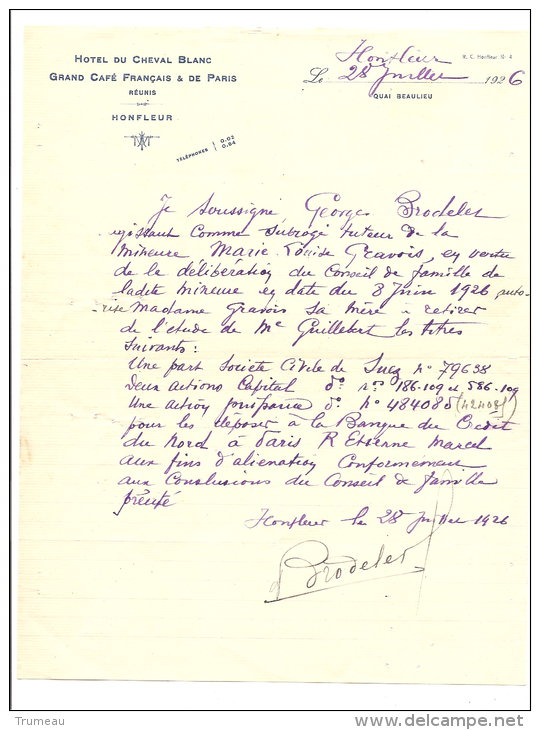 HOTEL DU CHEVAL BLANC
GRAND CAFÉ FRANÇAIS & DE PARIS
RÉUNIS
HONFLEUR
TÉLÉPHONES 0.02
0.84
R. C. Honfleur N° 4
Honfleur
Le 28 Juillet 1926
QUAI BEAULIEU
Je soussigné, Georges Brodelet
agissant comme subrogé tuteur de la
mineure Marie Louise Gravois, en vertu
de la délibération du Conseil de famille de
ladite mineure en date du 8 Juin 1926 auto-
-rise Madame Gravois sa mère à retirer
de l'étude de Me Guillebert les titres
suivants :
Une part Societe Civile de Suez n° 79638
Deux actions Capital d° nos 186.109 et 586.109
Une action jouissance d° n° 484085 (424081)
pour les déposer à la Banque du Credit
du Nord à Paris R Etienne Marcel
aux fins d'alienation Conformement
aux Conclusions du Conseil de famille
précité
Honfleur le 28 Juillet 1926
Brodelet
Trumeau
delcampe.net